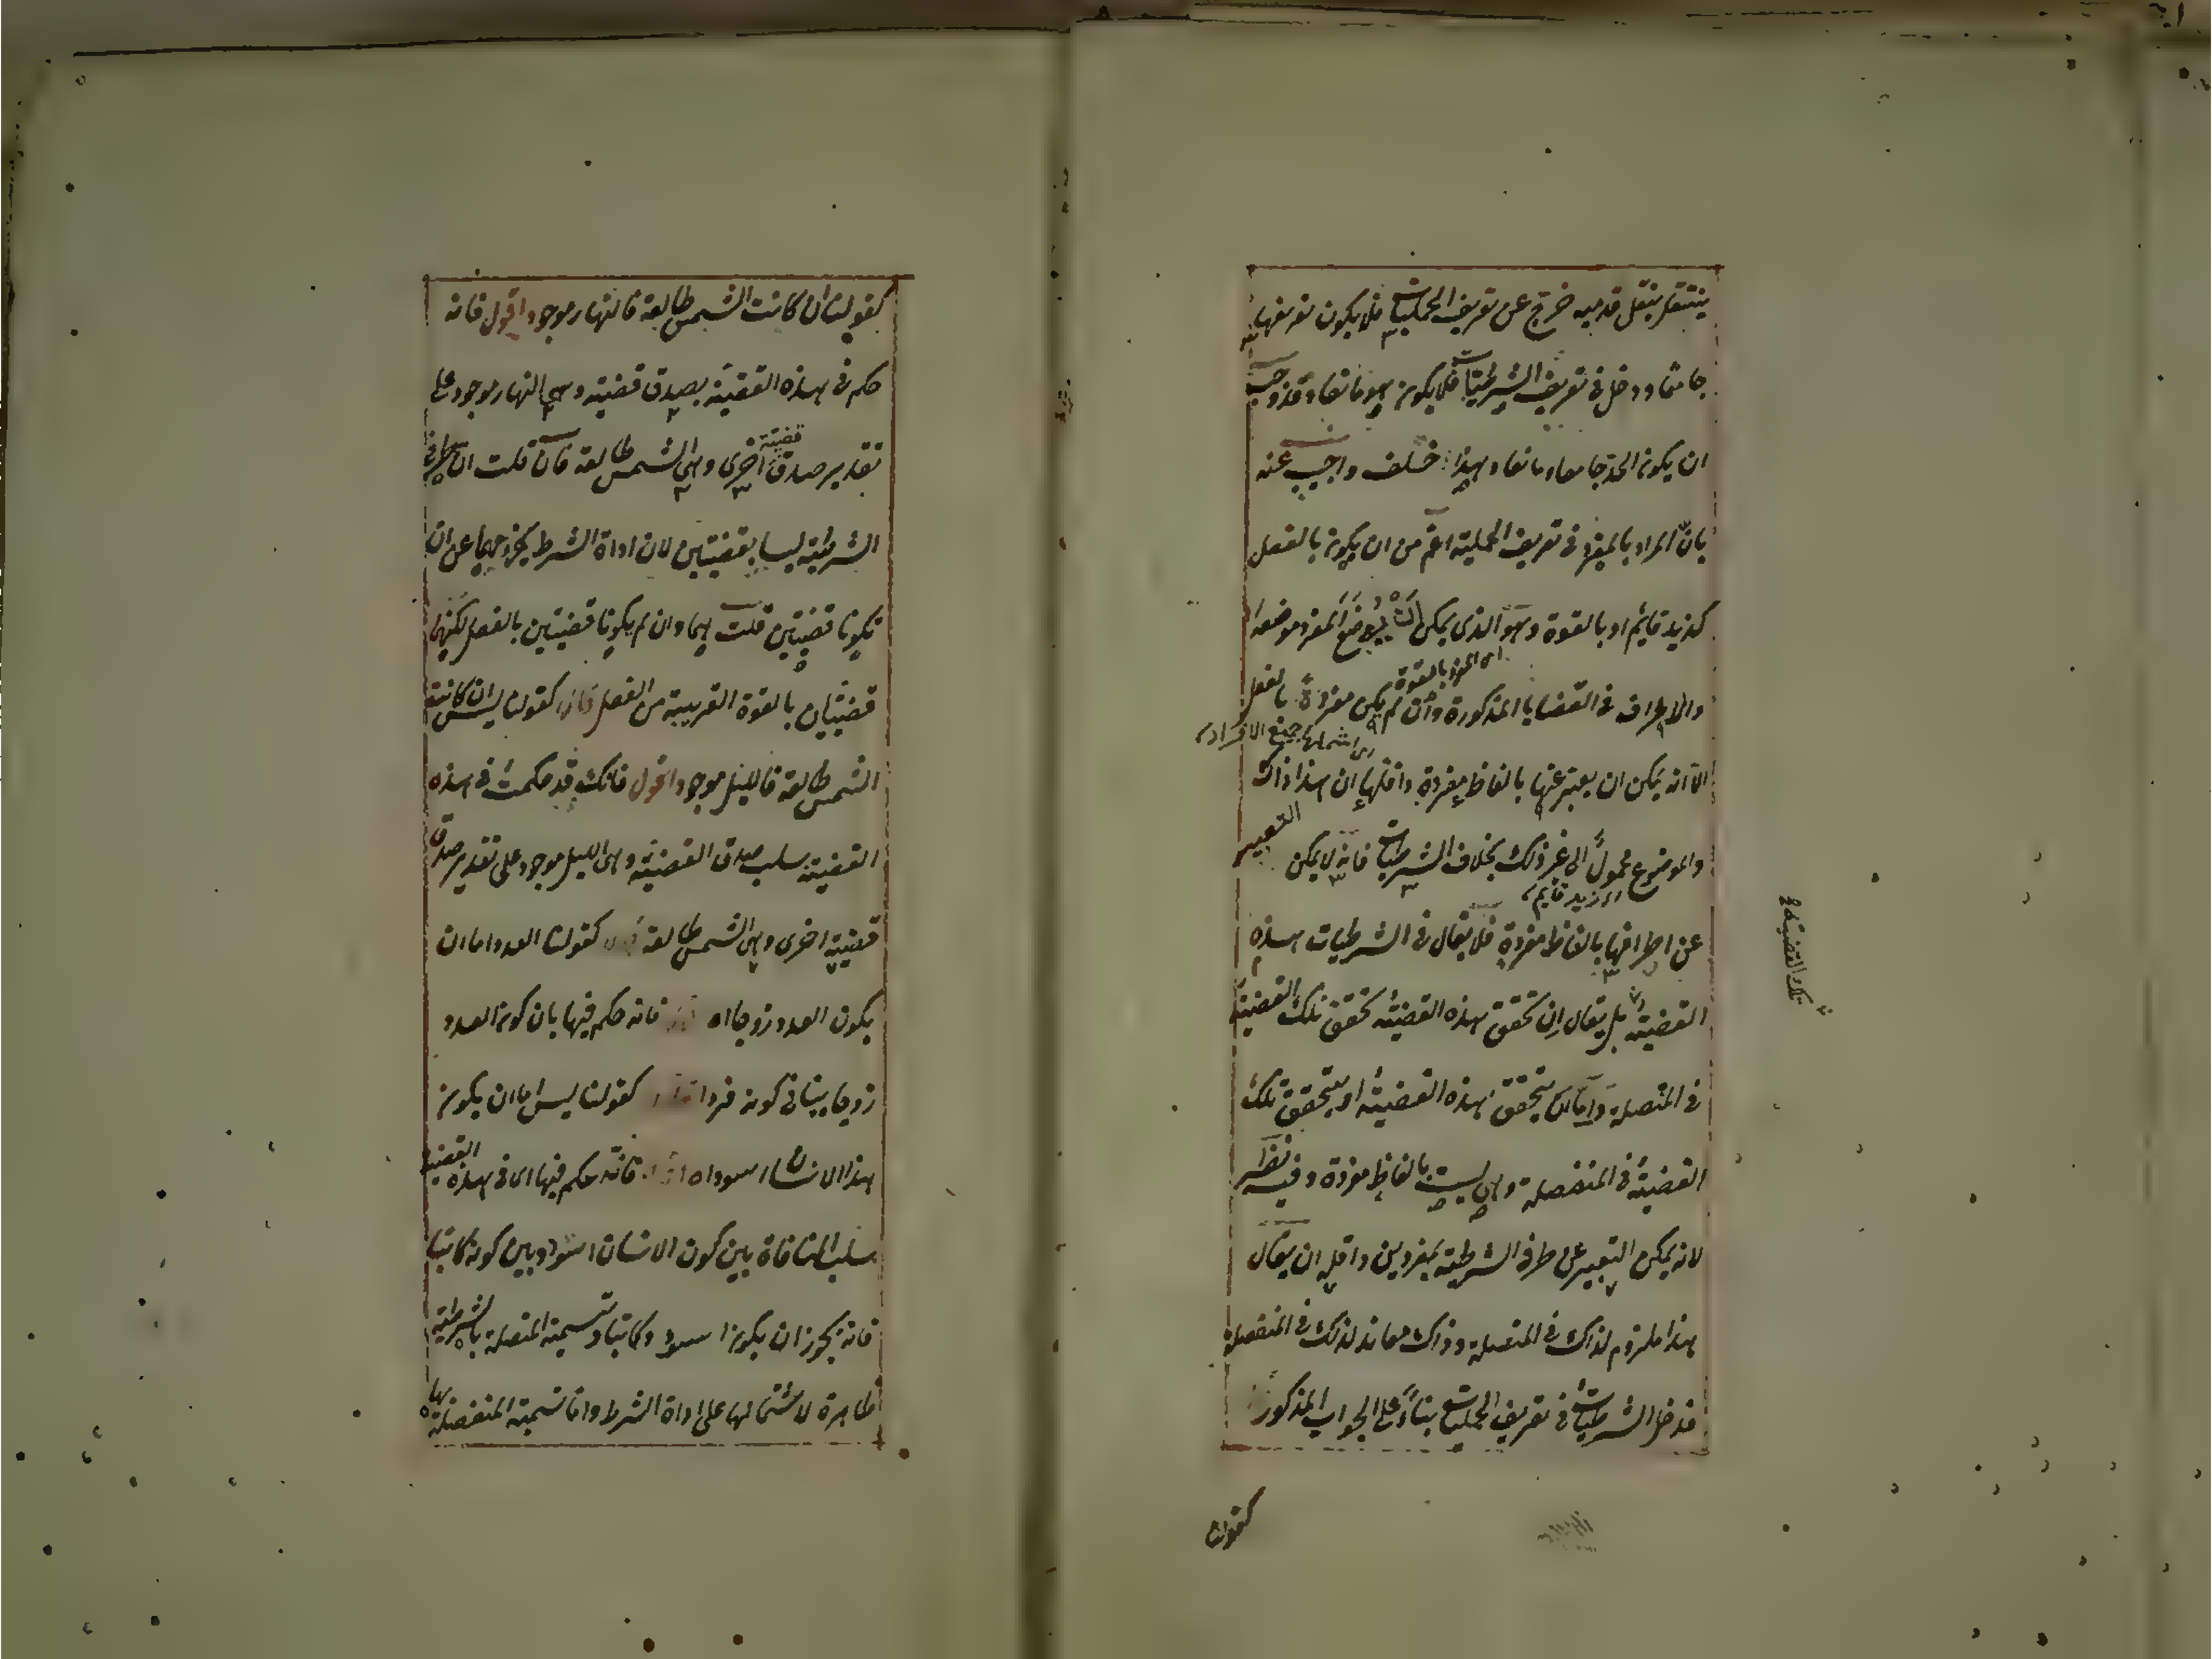 ينتقل بنقل قدميه خرج عن تعريف الحمليات فلا يكون تعريفها
جامعا ودخل في تعريف الشرطيات فلا يكون هو مانعا وقد وجب
ان يكون الحد جامعا ومانعا وهذا خلف واجيب عنه
بانّ المراد بالمفرد في تعريف الحملية اعم من ان يكون بالفعل
كزيد قايم او بالقوة وهو الذى يمكن ان يوضع المفرد موضعه
اى المفرد بالقوة
والاطراف في القضايا المذكورة وان لم يكن مفردة بالفعل
الا انه يمكن ان يعبر عنها بالفاظ مفردة واقلها ان هذا ذاك
والموضوع محمول الى غير ذلك بخلاف الشرطيات فانه لا يمكن التعبير
اى زيد قايم
عن اطرافها بالفاظ مفردة فلا يقال في الشرطيات هذه
القضية بل يقال ان تحقق هذه القضية تحقق تلك القضية
تلك القضية
في المتصلة واما ان يتحقق هذه القضية او يتحقق تلك
القضية في المنفصلة وهى ليست بالفاظ مفردة وفيه نظر
لانه يمكن التعبير عن طرفى الشرطية بمفردين واقله ان يقال
هذا ملزوم لذاك في المتصلة وذاك معاند لذلك في المنفصلة
فدخل الشرطيات في تعريف الحمليات بناءً على الجواب المذكور
كقولنا
كقولنا ان كانت الشمس طالعة فالنهار موجود اقول فانه
حكم في هذه القضية بصدق قضية وهى النهار موجود على
تقدير صدق قضية اخرى وهى الشمس طالعة فان قلت ان طرفى
الشرطية ليسا بقضيتين لان اداة الشرط يخرجهما عن ان
يكونا قضيتين قلت هما وان لم يكونا قضيتين بالفعل لكنهما
قضيتان بالقوة القريبة من الفعل كقولنا ليس ان كانت
الشمس طالعة فالليل موجود اقول فانك قد حكمت في هذه
القضية سلب صدق القضية وهى الليل موجود على تقدير صدق
قضية اخرى وهى الشمس طالعة كقولنا العدد اما ان
يكون العدد زوجا اه فانه حكم فيها بان كون العدد
زوجا ينافى كونه فردا كقولنا ليس اما ان يكون
هذا الانسان اسود اه فانه حكم فيها اى في هذه القضية
سلب المنافاة بين كون الانسان اسود وبين كونه كاتبا
فانه يجوز ان يكون اسود وكاتبا وتسمية المتصلة بالشرطية
ظاهرة لاشتمالها على اداة الشرط واما تسمية المنفصلة بها